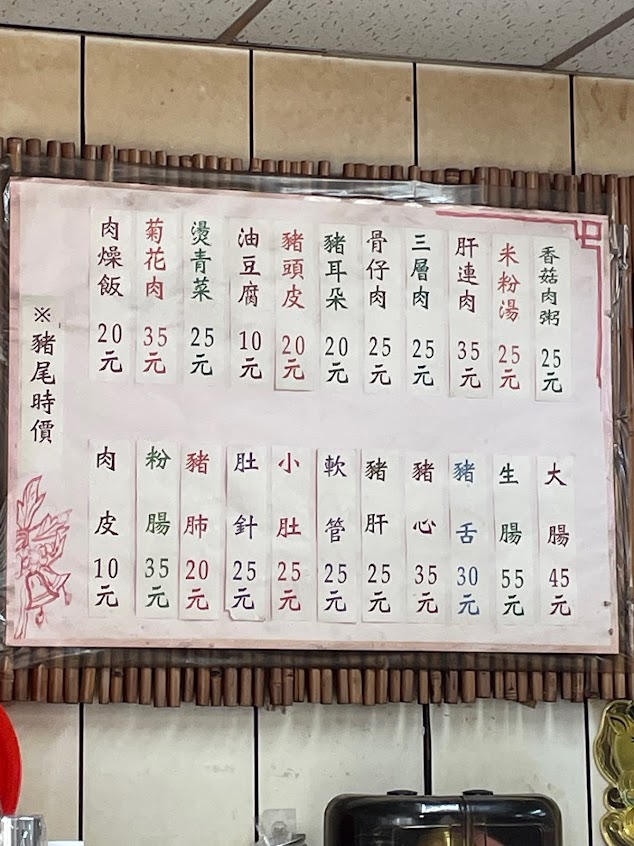 香菇肉粥 25元
米粉湯 25元
肝連肉 35元
三層肉 25元
骨仔肉 25元
豬耳朵 20元
豬頭皮 20元
油豆腐 10元
燙青菜 25元
菊花肉 35元
肉燥飯 20元
大腸 45元
生腸 55元
豬舌 30元
豬心 35元
豬肝 25元
軟管 25元
小肚 25元
肚針 25元
豬肺 20元
粉腸 35元
肉皮 10元
※豬尾時價